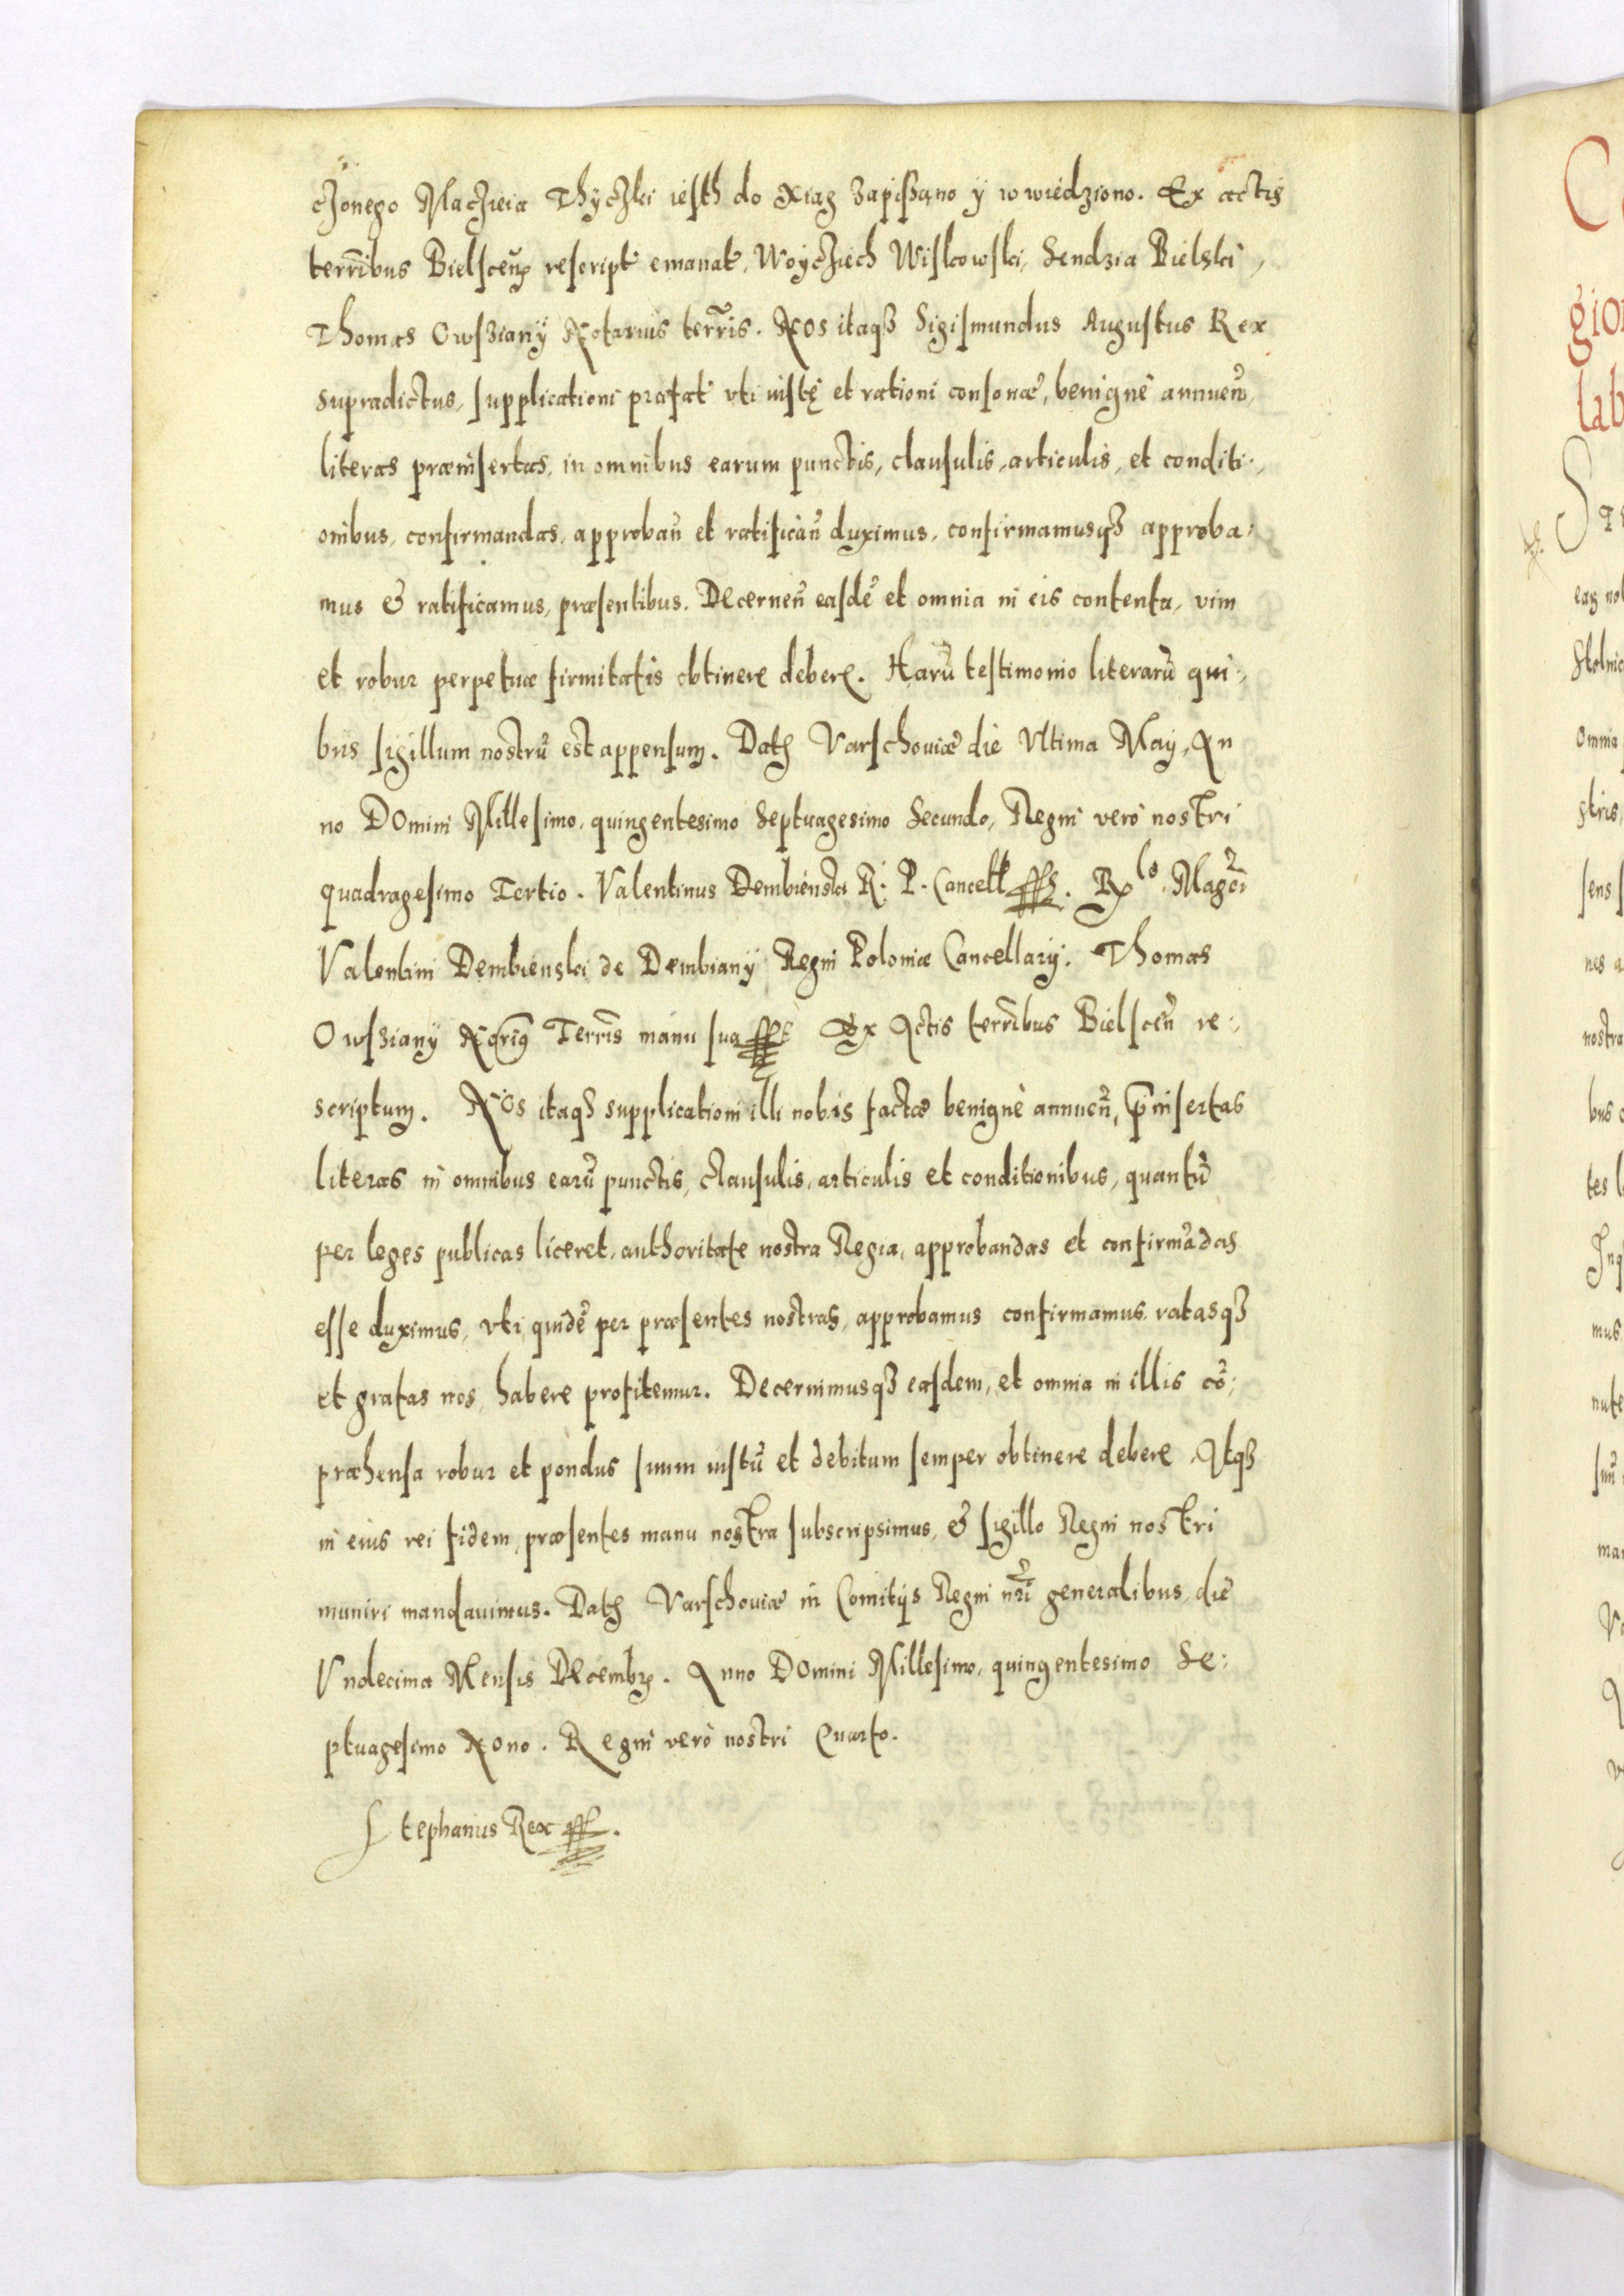 cżonego Macżieia Thycżki iesth do Xiąg zapißano y w wiedziono. Ex actis
terr̃ibus Bielsceñ rescript emanat, Woycżiech Wiskowski, Sendzia Bielski,
Thomas Owsziany Notarius terr̃is. Nos itaqȝ Sigismundus Augustus Rex
supradictus, supplicationi præfat uti iustę et rationi consonæ, benignè annueñ,
literas præinsertas, in omnibus earum punctis, clausulis, articulis, et conditi:,
onibus, confirmandas, approbañ et ratificañ duximus, confirmamusqȝ approba:
mus & ratificamus, præsentibus. Decerneñ easdẽ et omnia in eis contenta, vim
et robur perpetuæ firmitatis obtinere debere. Harũ testimonio literarũ qui:,
bus sigillum nostrũ est appensum. Datȝ Varschouiæ die Vltima May, An
no Domini Millesimo, quingentesimo Septuagesimo Secundo, Regni verò nostri
quadragesimo Tertio. Valentinus Dembienski R. P. Cancell. Rlo Magcì
Valentini Dembienski de Dembiany Regni Poloniæ Cancellarÿ. Thomas
Owsziany Notrius Terr̃is manu sua Ex Actis terr̃ibus Bielsceñ re:,
scriptum. Nos itaqȝ supplicationi illi nobis factæ benignè annueñ, p̃insertas
literas in omnibus earũ punctis, clausulis, articulis et conditionibus, quantũ
per leges publicas liceret, authoritate nostra Regia, approbandas et confirmãdas
esse duximus, vti quidẽ per præsentes nostras, approbamus confirmamus, ratasqȝ
et gratas nos, habere profitemur. Decernimusqȝ easdem, et omnia in illis cõ:,
præhensa robur et pondus suum iustũ et debitum semper obtinere debere. Atqȝ
in eius rei fidem, præsentes manu nostra subscripsimus, & sigillo Regni nostri
muniri mandauimus. Datȝ Varschouiæ in Comitÿs Regni nr̃i generalibus, die
Vndecima Mensis Decembr. Anno Domini Millesimo, quingentesimo Se:,
ptuagesimo Nono. Regni verò nostri Quarto.
Stephanus Rex